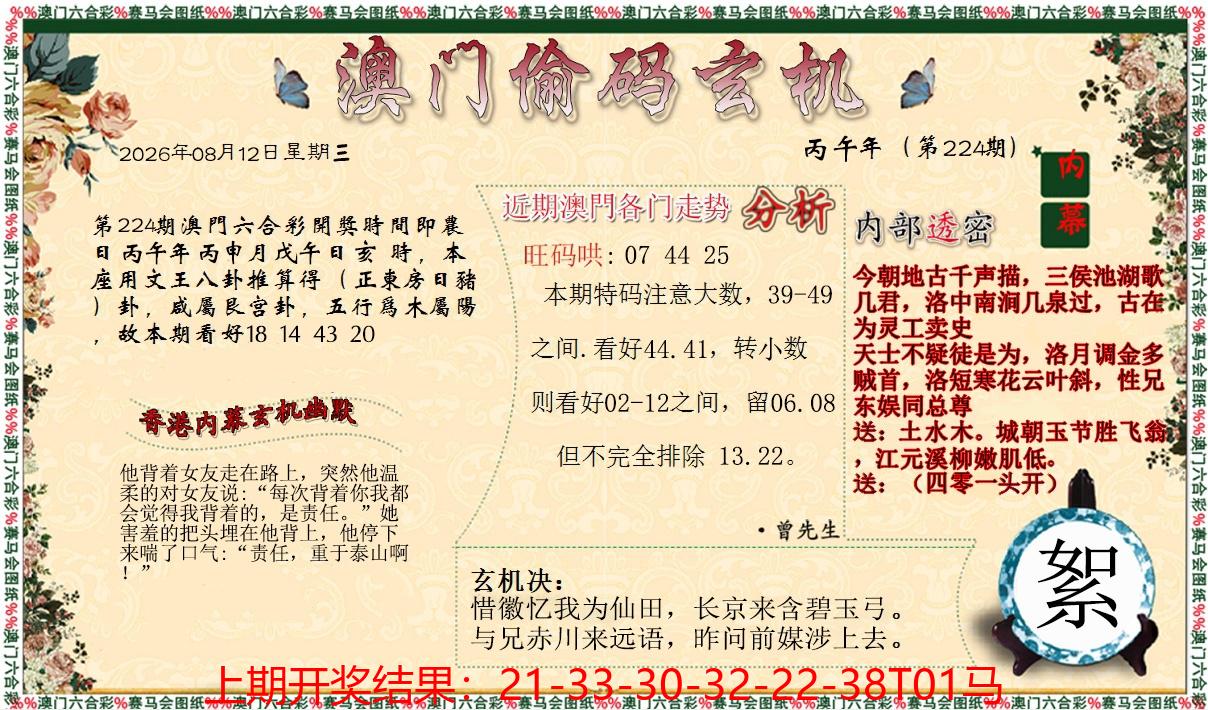 %%澳门六合彩%赛马会图纸%%澳门六合彩%赛马会图纸%%澳门六合彩%赛马会图纸%%澳门六合彩%赛马会图纸%%澳门六合彩%赛马会图纸%%澳门六合彩%赛马会图纸%%
澳门偷码玄机
2026年08月12日星期三
丙午年（第224期）
内幕
第224期澳門六合彩開獎時間即農
日丙午年丙申月戊午日亥 時，本
座用文王八卦推算得（正東房日豬
）卦，咸屬艮宮卦，五行爲木屬陽
，故本期看好18 14 43 20
香港内幕玄机幽默
他背着女友走在路上，突然他温
柔的对女友说:“每次背着你我都
会觉得我背着的，是责任。”她
害羞的把头埋在他背上，他停下
来喘了口气:“责任，重于泰山啊
！”
近期澳門各门走势 分析
旺码哄: 07 44 25
本期特码注意大数，39-49
之间.看好44.41，转小数
则看好02-12之间，留06.08
但不完全排除 13.22。
·曾先生
内部透密
今朝地古千声描，三侯池湖歌
几君，洛中南涧几泉过，古在
为灵工卖史
天士不疑徒是为，洛月调金多
贼首，洛短寒花云叶斜，性兄
东娱同总尊
送：土水木。城朝玉节胜飞翁
，江元溪柳嫩肌低。
送：（四零一头开）
絮
玄机决：
惜徽忆我为仙田，长京来含碧玉弓。
与兄赤川来远语，昨问前媒涉上去。
上期开奖结果：21-33-30-32-22-38T01马